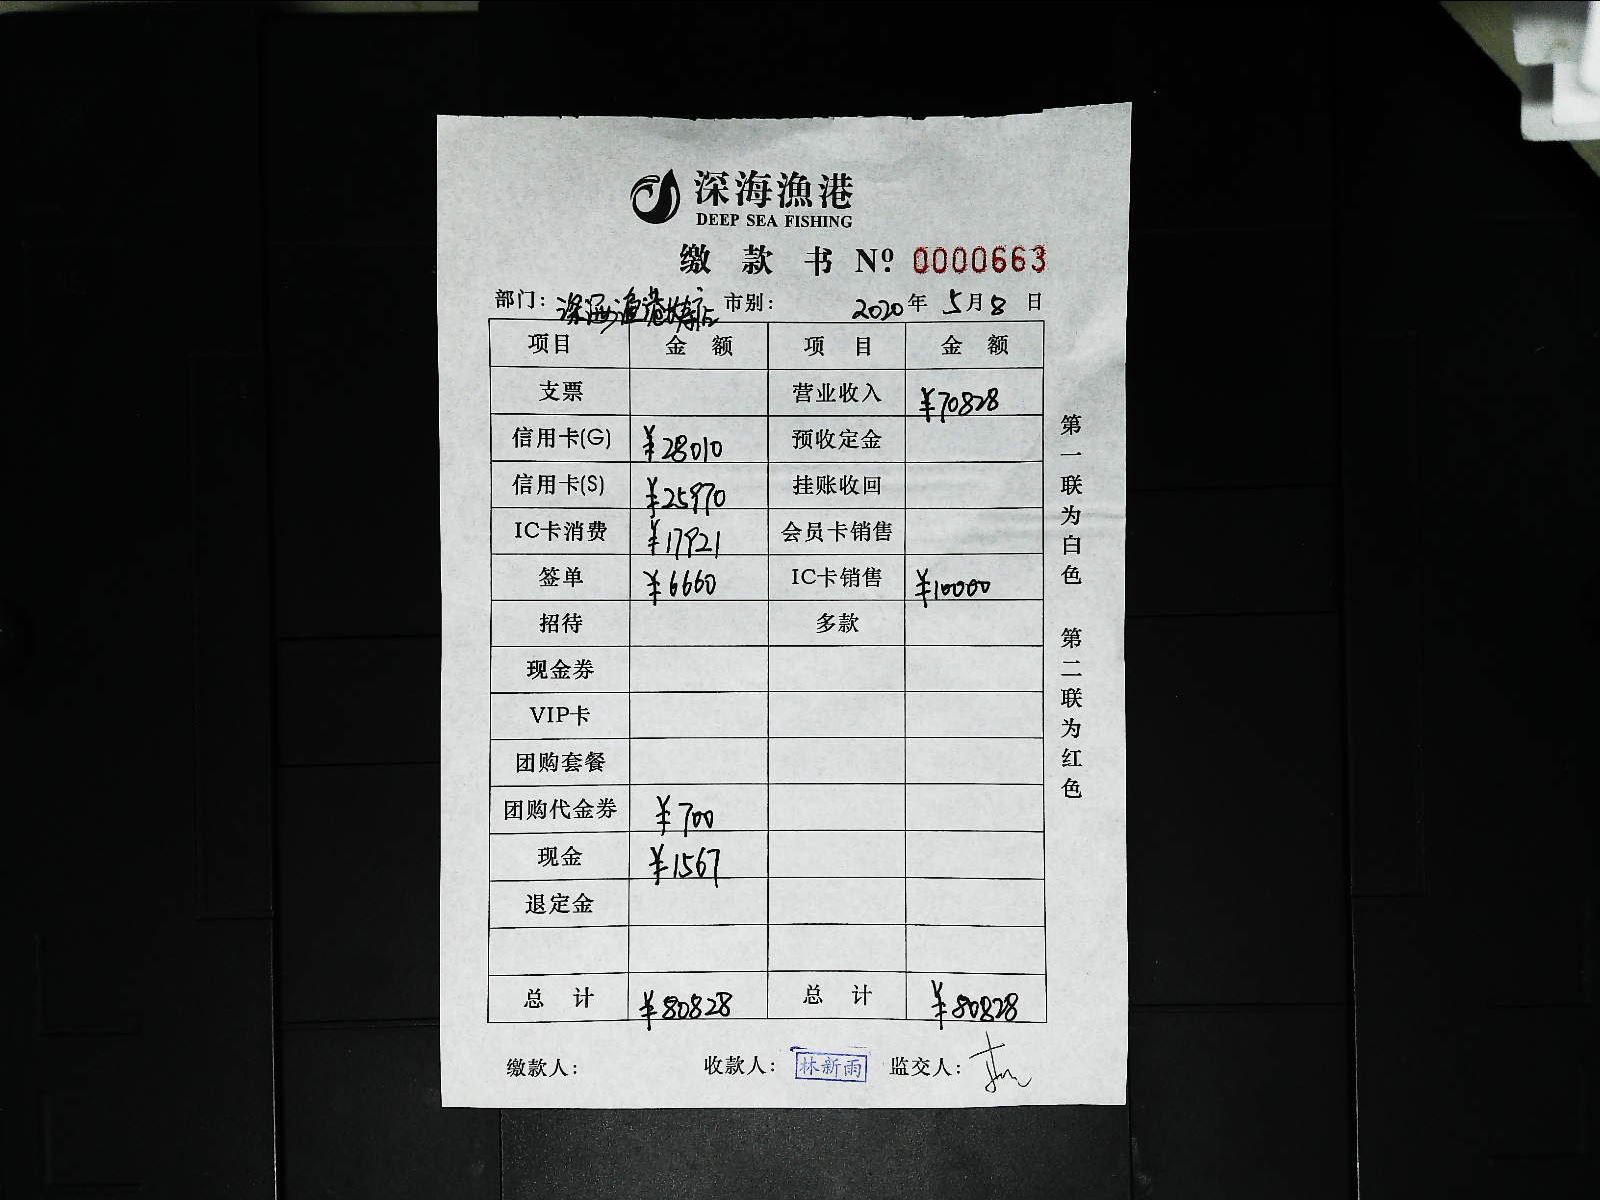 深海漁港
DEEP SEA FISHING
缴 款 书 Nº 0000663
部门: 深海渔港 市别: 2020年 5月8日
项目 金 额 项 目 金 额
支票 营业收入 ¥70828
信用卡(G) ¥28010 预收定金
信用卡(S) ¥25970 挂账收回
IC卡消费 ¥17921 会员卡销售
签单 ¥6660 IC卡销售 ¥10000
招待 多款
现金券
VIP卡
团购套餐
团购代金券 ¥700
现金 ¥1567
退定金
总 计 ¥80828 总 计 ¥80828
缴款人: 收款人: 林新雨 监交人:
第一联为白色 第二联为红色